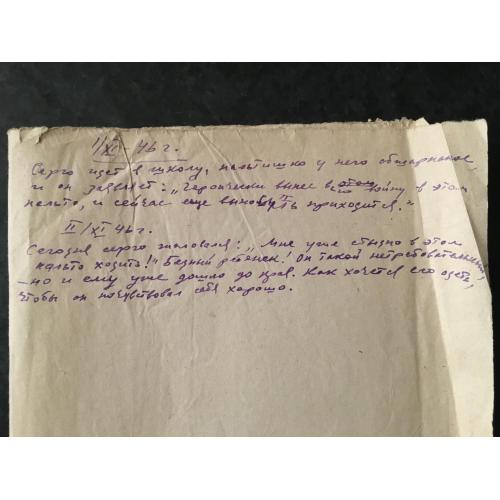 1/XI-46 г.
Серго идет в школу, пальтишко у него обшарпаное,
и он заявляет: „Героически вынес всю войну в этом
пальто, и сейчас еще выносить приходится."
II/XI 46 г.
Сегодня Серго жаловался: „Мне уже стыдно в этом
пальто ходить!" Бедный ребенок! Он такой нетребовательный,
— но и ему уже дошло до края. Как хочется его одеть,
чтобы он почувствовал себя хорошо.